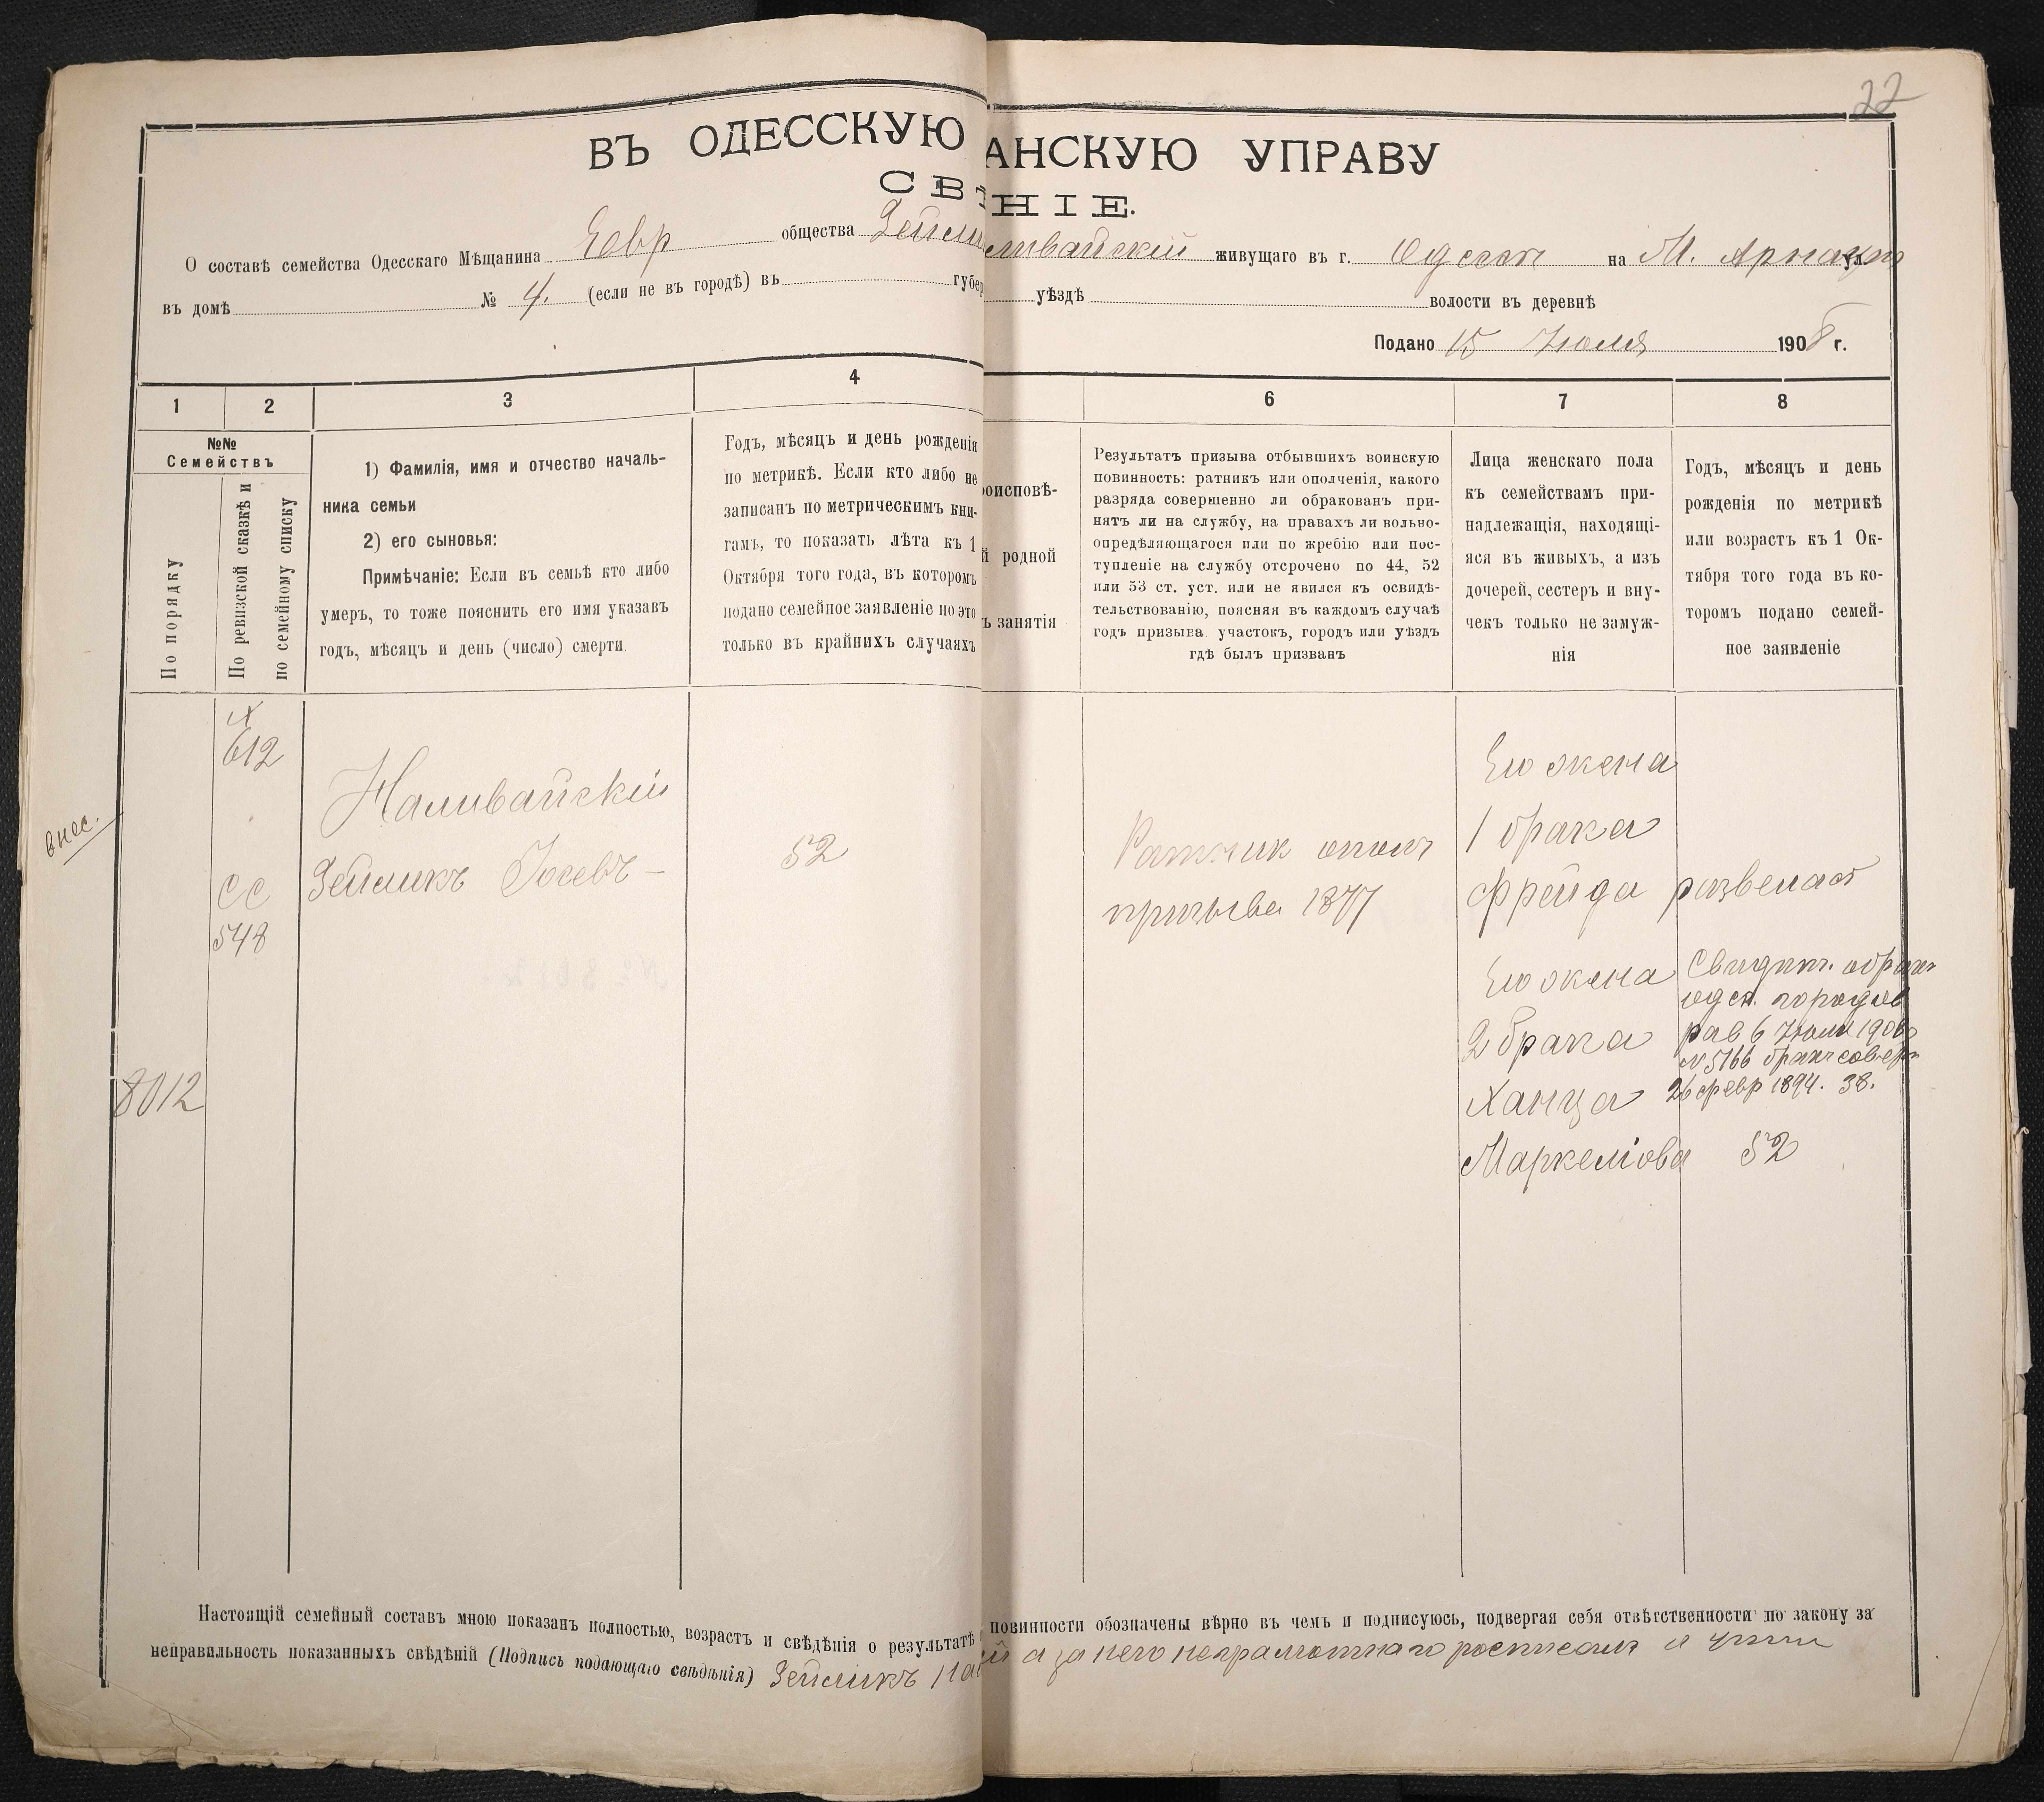 22
ВЪ ОДЕССКУЮ АНСКУЮ УПРАВУ
СВ НІЕ.
О составѣ семейства Одесскаго Мѣщанина Евр общества Зейли ливайскій живущаго въ г. Одессѣ на М. Арнаут ул.
въ домѣ № 4. (если не въ городѣ) въ губер уѣздѣ волости въ деревнѣ
Подано 15 Іюля 1908 г.
1 2 3 4 6 7 8
№№
Семействъ
По порядку
По ревизской сказкѣ и
по семейному списку
1) Фамилія, имя и отчество началь-
ника семьи
2) его сыновья:
Примѣчаніе: Если въ семьѣ кто либо
умеръ, то тоже пояснить его имя указавъ
годъ, мѣсяцъ и день (число) смерти.
Годъ, мѣсяцъ и день рожденія
по метрикѣ. Если кто либо не
записанъ по метрическимъ кни-
гамъ, то показать лѣта къ 1
Октября того года, въ которомъ
подано семейное заявленіе но это
только въ крайнихъ случаяхъ
роисповѣ-
й родной
ъ занятія
Результатъ призыва отбывшихъ воинскую
повинность: ратникъ или ополченія, какого
разряда совершенно ли обракованъ при-
нятъ ли на службу, на правахъ ли вольно-
опредѣляющагося или по жребію или пос-
тупленіе на службу отсрочено по 44, 52
или 53 ст. уст. или не явился къ освидѣ-
тельствованію, поясняя въ каждомъ случаѣ
годъ призыва. участокъ, городъ или уѣздъ
гдѣ былъ призванъ
Лица женскаго пола
къ семействамъ при-
надлежащія, находящі-
яся въ живыхъ, а изъ
дочерей, сестеръ и вну-
чекъ только не замуж-
нія
Годъ, мѣсяцъ и день
рожденія по метрикѣ
или возрастъ къ 1 Ок-
тября того года въ ко-
торомъ подано семей-
ное заявленіе
внес.
8012
612
СС
548
Наливайскій
Зейликъ Іосевъ -
52
Ратник ополч
призыва 1877
Его жена
1 брака
Фрейда развелась
Его жена
2 брака
Ханца
Маркеміова 52
Свидѣт. о брак
одес. город
рав 6 Іюля 1906
№ 5166 брак совер
26 февр 1894. 38.
Настоящій семейный составъ мною показанъ полностью, возрастъ и свѣдѣнія о результатѣ повинности обозначены вѣрно въ чемъ и подписуюсь, подвергая себя отвѣтственности по закону за
неправильность показанныхъ свѣдѣній (Подпись подающаго свѣдѣнія) Зейликъ На й а за него неграмотнаго росписалъ